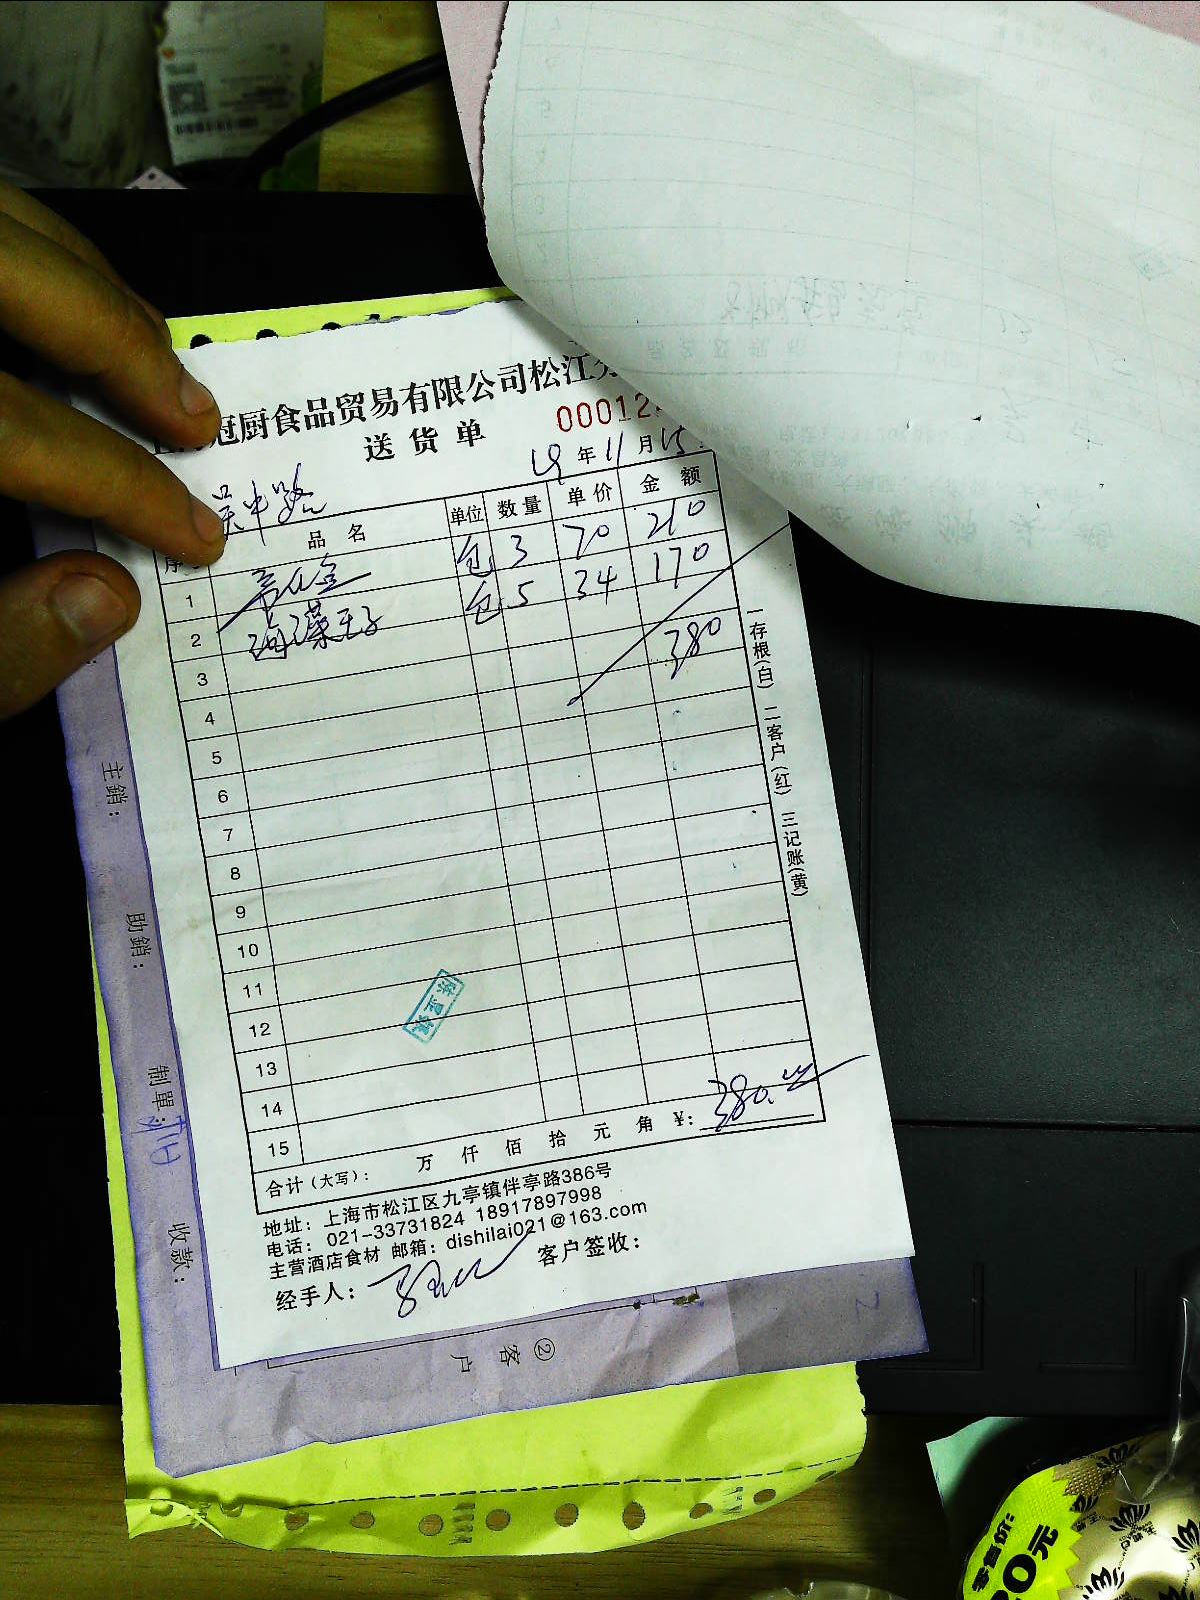 冠厨食品贸易有限公司松江
送货单
00012
19年11月15
吴中路
品名 单位 数量 单价 金额
1 包 3 70 210
2 海藻王子 包 5 34 170
3 380
4
5
6
7
8
9
10
11
12
13
14
15
合计（大写）： 万 仟 佰 拾 元 角 ¥: 380.00
地址：上海市松江区九亭镇伴亭路386号
电话：021-33731824 18917897998
主营酒店食材 邮箱：dishilai021@163.com
经手人： 客户签收：
一存根(白) 二客户(红) 三记账(黄)
主銷：
助銷：
制單：
收款：
②客户
零售价：
20元